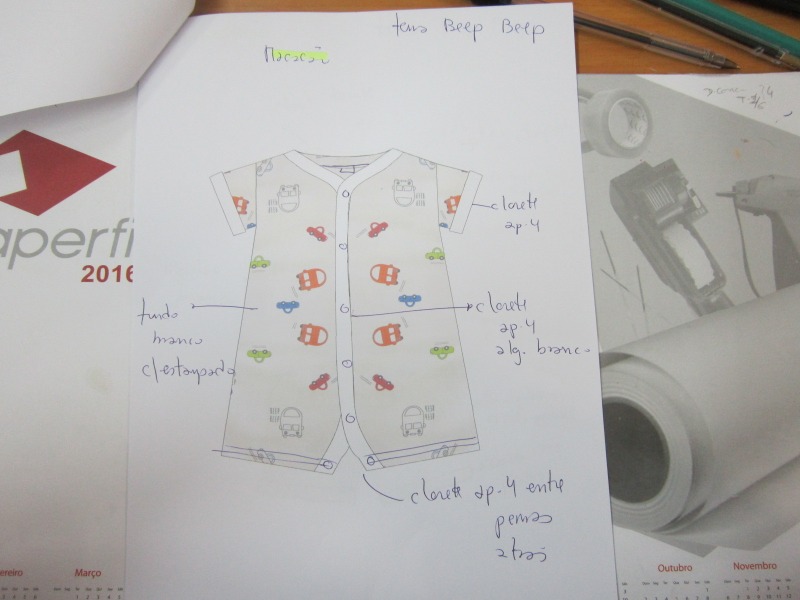 tema Beep Beep
Macacão
aperfi
2016
clorete
ap. 4
fundo
branco
c/ estampado
clorete
ap. 4
alg. branco
clorete ap. 4 entre
pernas
atrás
ereiro
Março
Outubro
Novembro